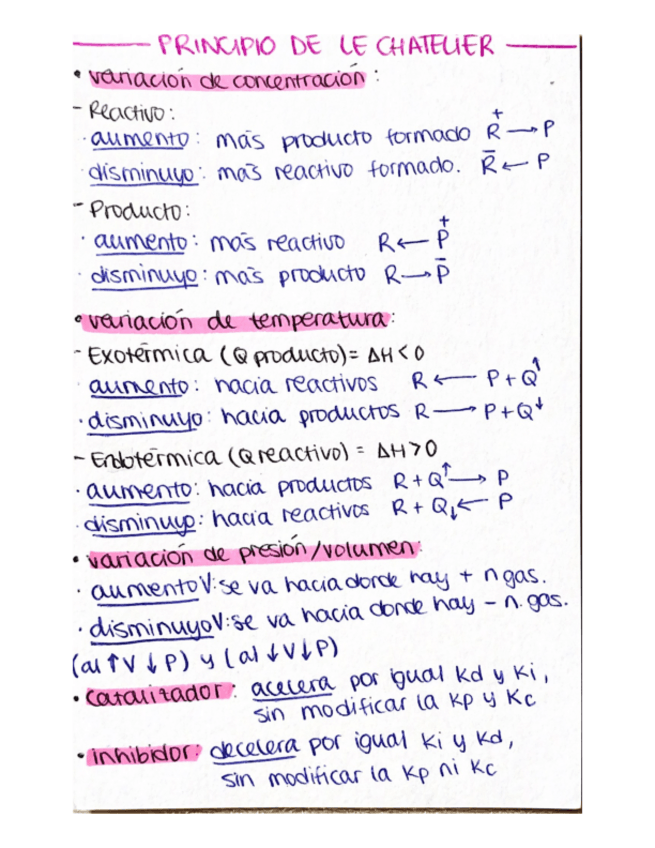 PRINCIPIO DE LE CHATELIER
• variación de concentración:
- Reactivo:
· aumento: más producto formado R⁺ → P
· disminuyo: más reactivo formado. R⁻ ← P
- Producto:
· aumento: más reactivo R ← P⁺
· disminuyo: más producto R → P⁻
• variación de temperatura:
- Exotérmica (Q producto) = ΔH < 0
· aumento: hacia reactivos R ← P + Q↑
· disminuyo: hacia productos R → P + Q↓
- Endotérmica (Q reactivo) = ΔH > 0
· aumento: hacia productos R + Q↑ → P
· disminuyo: hacia reactivos R + Q↓ ← P
• variación de presión/volumen:
· aumento V: se va hacia donde hay + n gas.
· disminuyo V: se va hacia donde hay - n. gas.
(al ↑V ↓P) y (al ↓V↓P)
• catalizador: acelera por igual Kd y Ki,
sin modificar la Kp y Kc
• inhibidor: decelera por igual Ki y Kd,
sin modificar la Kp ni Kc